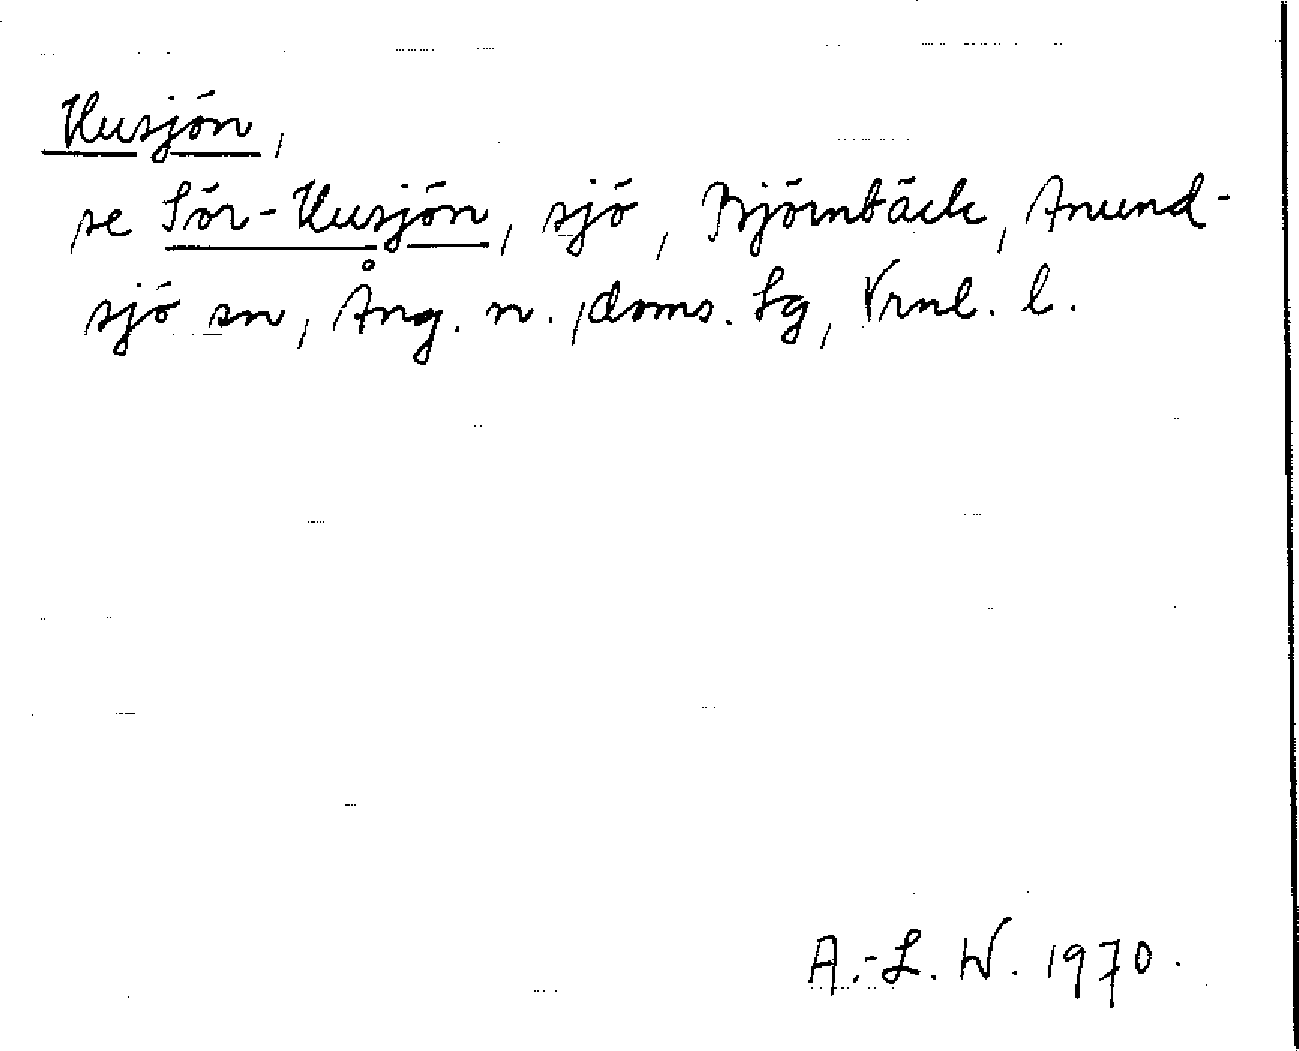 Husjön,
se Sör-Husjön, sjö, Björnbäck, Anund-
sjö sn, Ång. n. doms. tg, Vrnl. l.
A.-L. W. 1970.